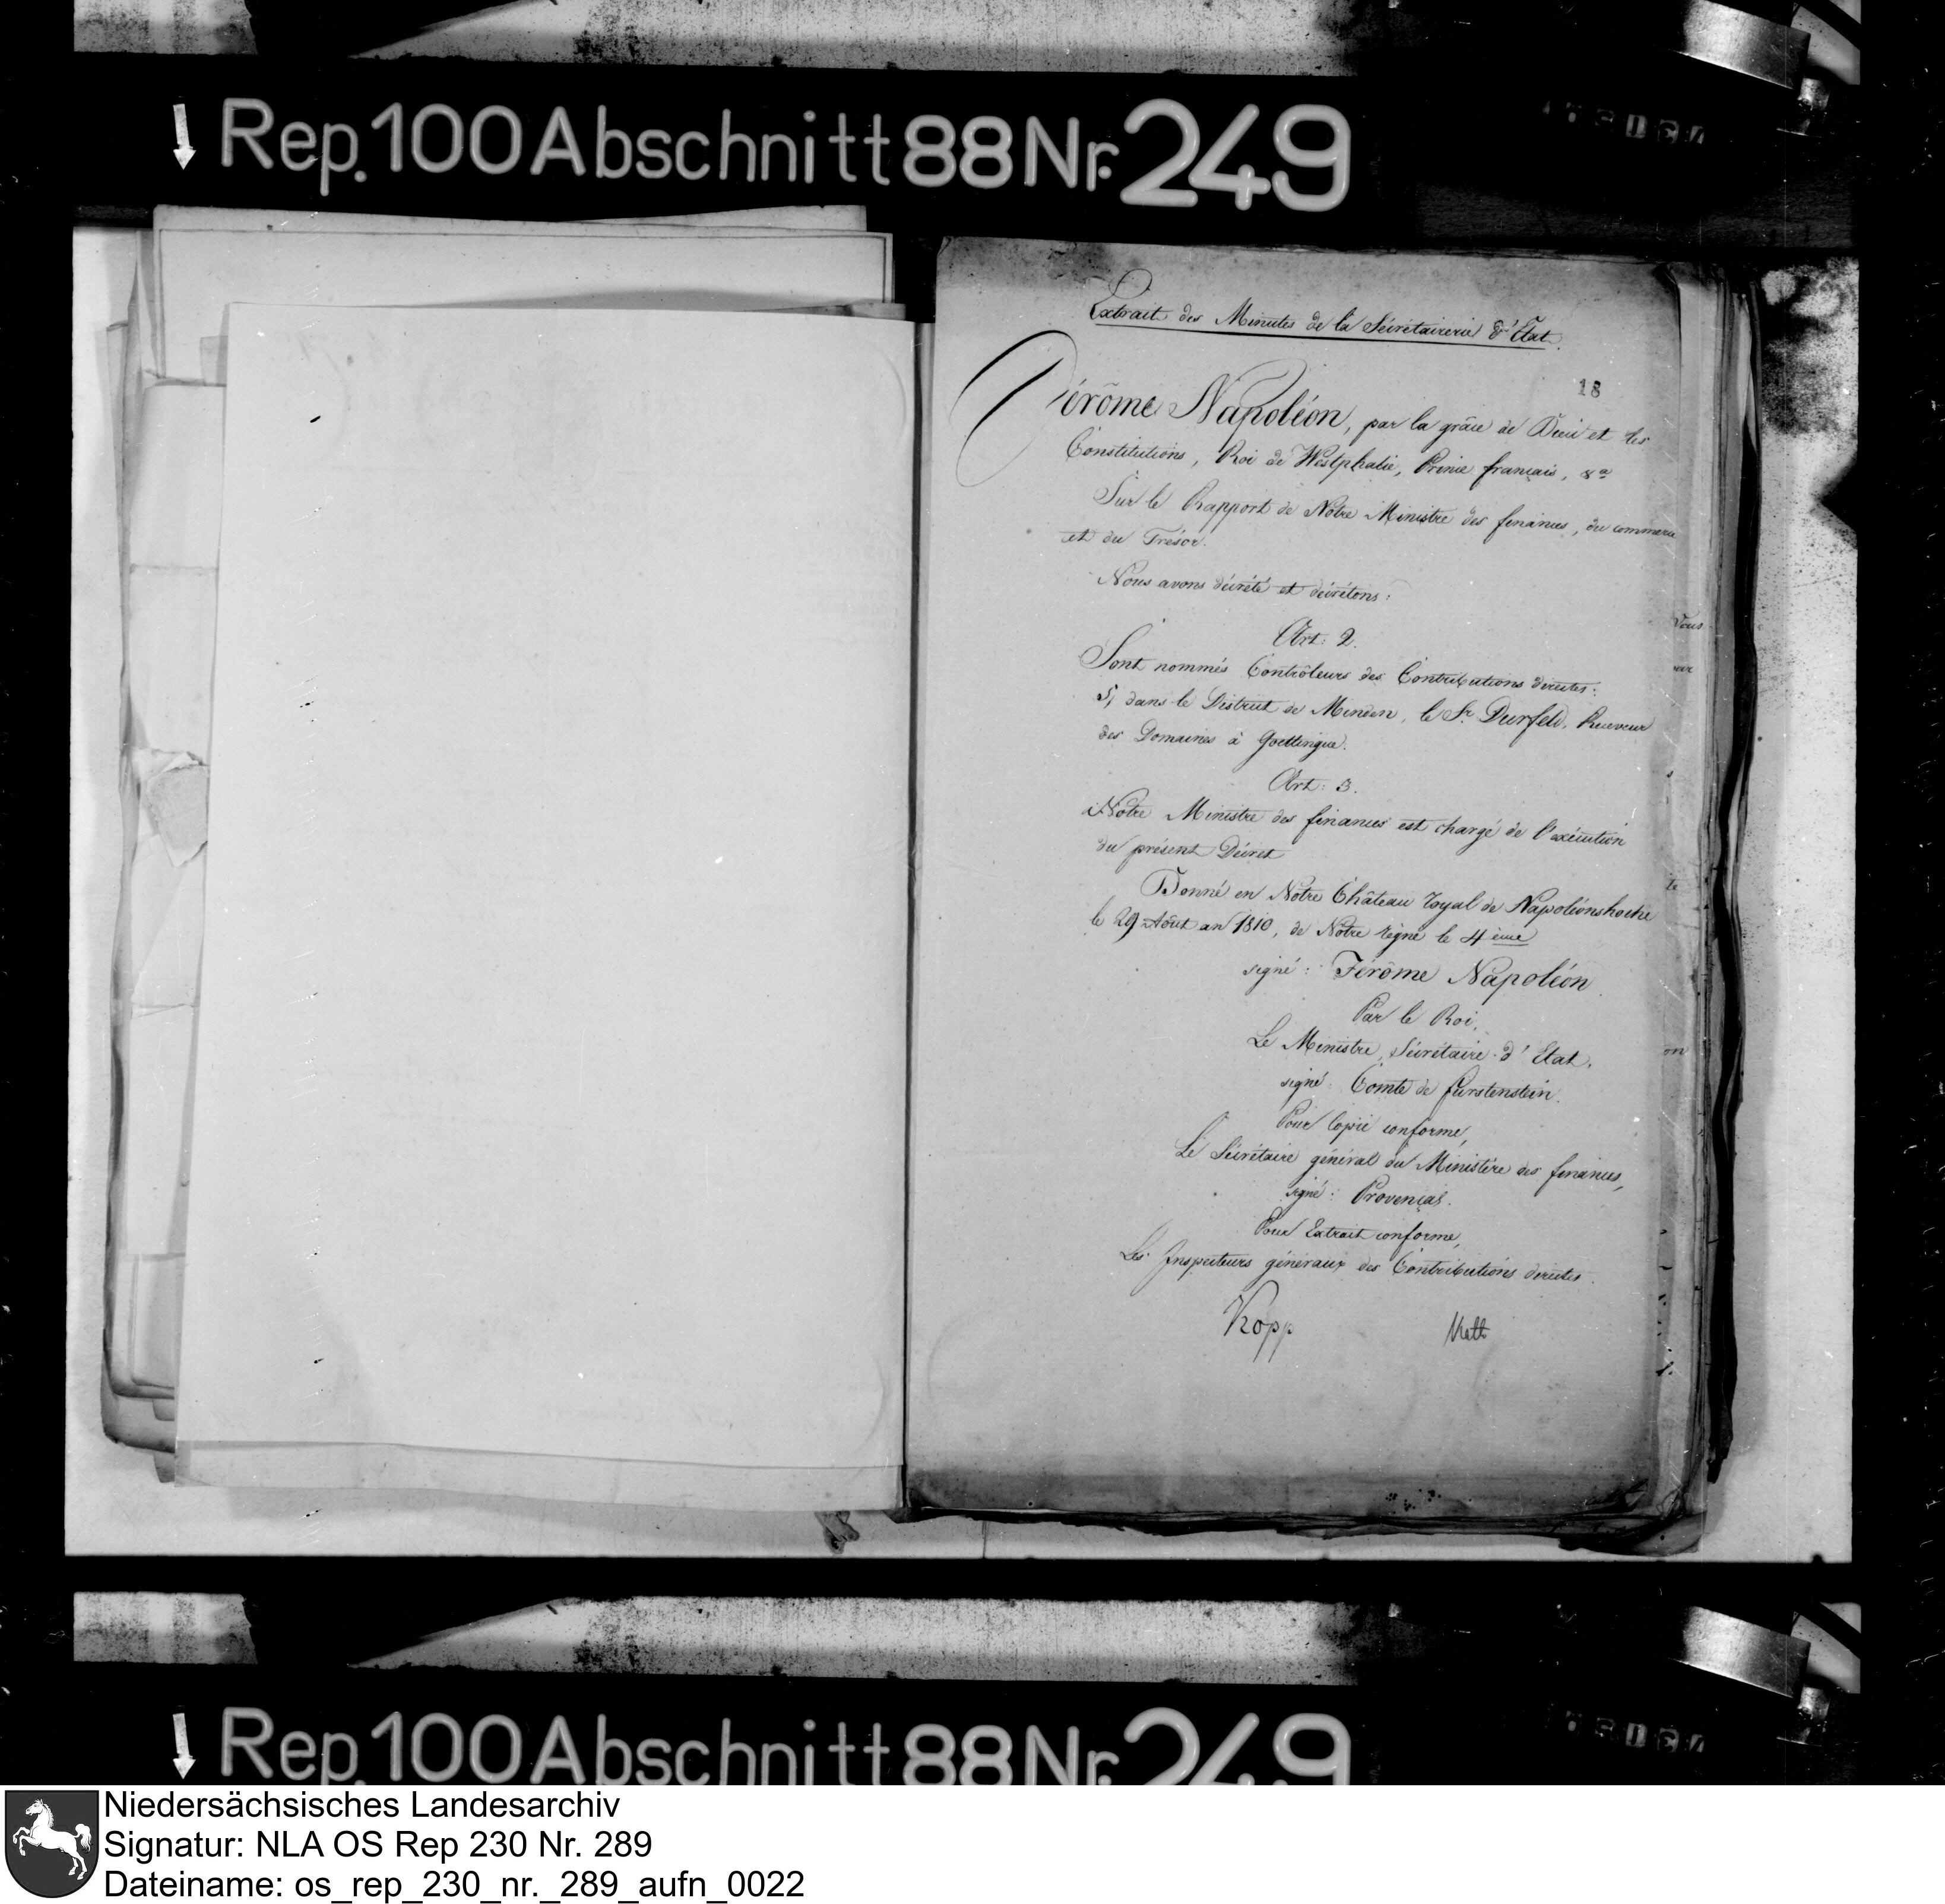 Rep. 100 Abschnitt 88 Nr. 249
Extrait des Minutes de la Sécrétairerie d'Etat.
18
Jérôme Napoléon, par la grâce de Dieu et les
Constitutions, Roi de Westphalie, Prince français, &a
Sur le Rapport de Notre Ministre des finances, du commerce
et du Trésor.
Nous avons décrété et décrétons:
Art: 2.
Sont nommés Contrôleurs des Contributions directes:
5, dans le District de Minden, le Sr. Durfeld, Receveur
des Domaines à Goettingue.
Art: 3.
Notre Ministre des finances est chargé de l'exécution
du présent Décret
Donné en Notre Château royal de Napoléonshoehe
le 29 Août an 1810, de Notre règne le 4ème
signé: Jérôme Napoléon
Par le Roi,
Le Ministre, Sécrétaire d'Etat,
signé: Comte de Furstenstein.
Pour Copie conforme,
Le Sécrétaire général du Ministère des finances,
signé: Provençal.
Pour Extrait conforme,
Les Inspecteurs généraux des Contributions directes.
Kopp
Vous
on
Rep. 100 Abschnitt 88 Nr. 249
Niedersächsisches Landesarchiv
Signatur: NLA OS Rep 230 Nr. 289
Dateiname: os_rep_230_nr._289_aufn_0022